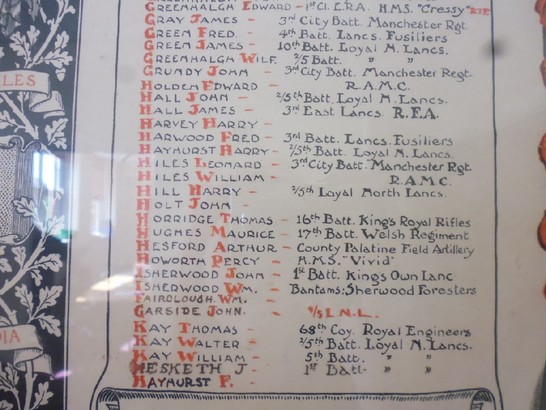 GREENHALGH EDWARD - 1st Cl. E.R.A. H.M.S. "Cressy" R.I.P.
GRAY JAMES - 3rd City Batt. Manchester Rgt.
GREEN FRED. - 4th Batt. Lancs. Fusiliers
GREEN JAMES - 10th Batt. Loyal N. Lancs.
GREENHALGH WILF. 2/5 Batt. " "
GRUNDY JOHN - 3rd City Batt. Manchester Regt.
HOLDEN EDWARD - R.A.M.C.
HALL JOHN - 2/5th Batt. Loyal N. Lancs.
HALL JAMES - 3rd East Lancs. R.F.A.
HARVEY HARRY -
HARWOOD FRED - 3rd Batt. Lancs. Fusiliers
HAYHURST HARRY - 2/5th Batt. Loyal N. Lancs.
HILES LEONARD - 3rd City Batt. Manchester Rgt.
HILES WILLIAM - R.A.M.C.
HILL HARRY - 2/5th Loyal North Lancs.
HOLT JOHN -
HORRIDGE THOMAS - 16th Batt. King's Royal Rifles
HUGHES MAURICE - 17th Batt. Welsh Regiment
HESFORD ARTHUR - County Palatine Field Artillery
HOWORTH PERCY - H.M.S. "Vivid"
ISHERWOOD JOHN - 1st Batt. Kings Own Lanc
ISHERWOOD WM. - Bantams: Sherwood Foresters
FAIRCLOUGH. WM. -
GARSIDE JOHN. - L.N.L.
KAY THOMAS - 68th Coy. Royal Engineers
KAY WALTER - 2/5th Batt. Loyal N. Lancs.
KAY WILLIAM - 5th Batt. " "
HESKETH J - 1st Batt - " "
HAYHURST F. -
LES
DIA